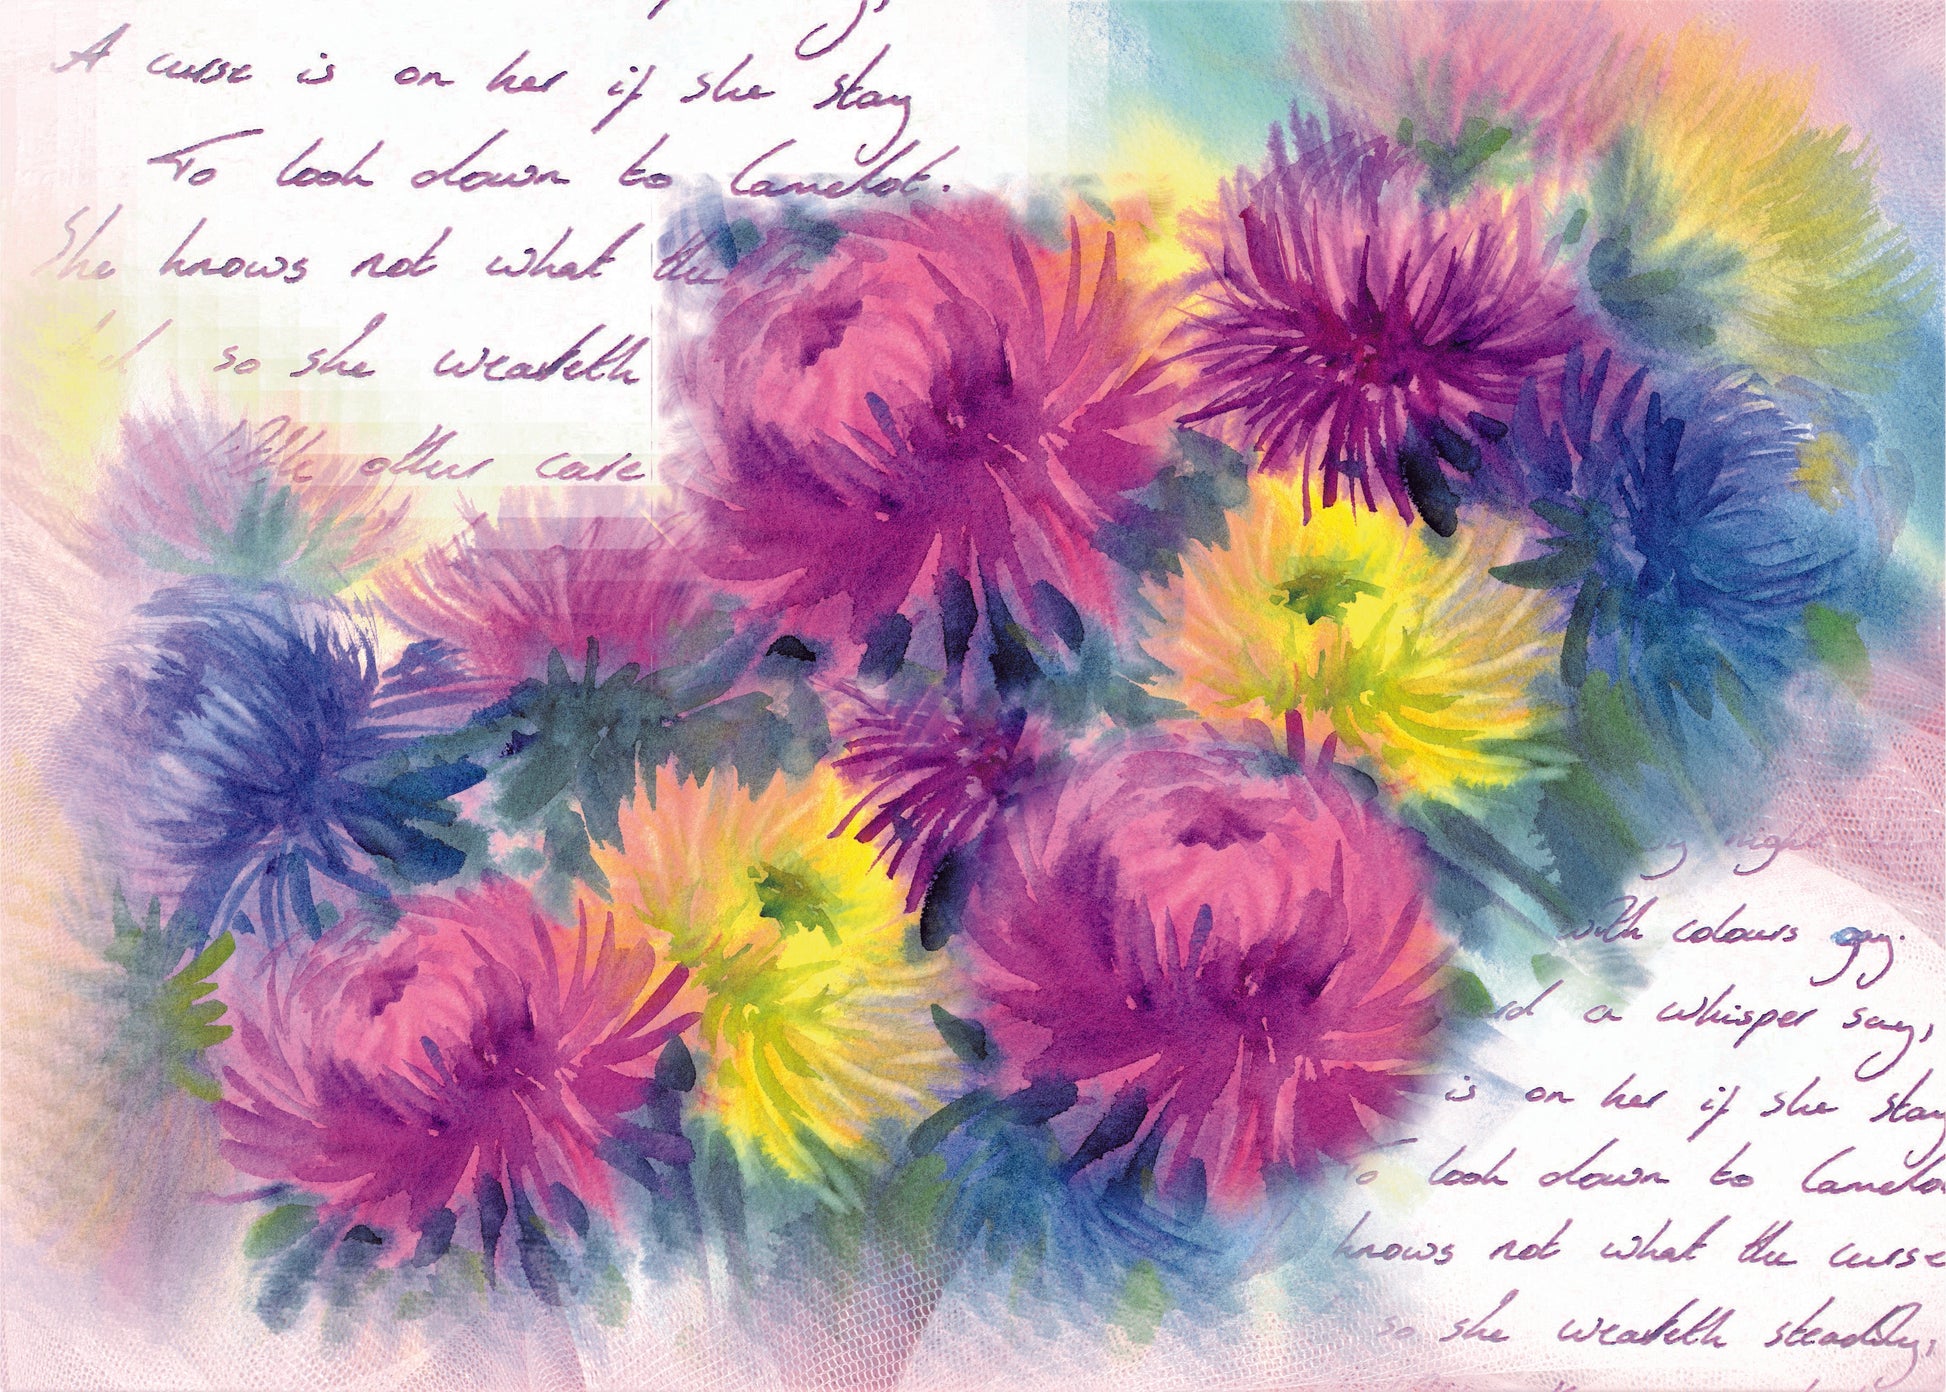 A curse is on her if she stay
To look down to Camelot.
She knows not what the
so she weaveth
With other care
night
with colours gay.
a whisper say,
is on her if she stay
To look down to Camelot
knows not what the curse
so she weaveth steadily,